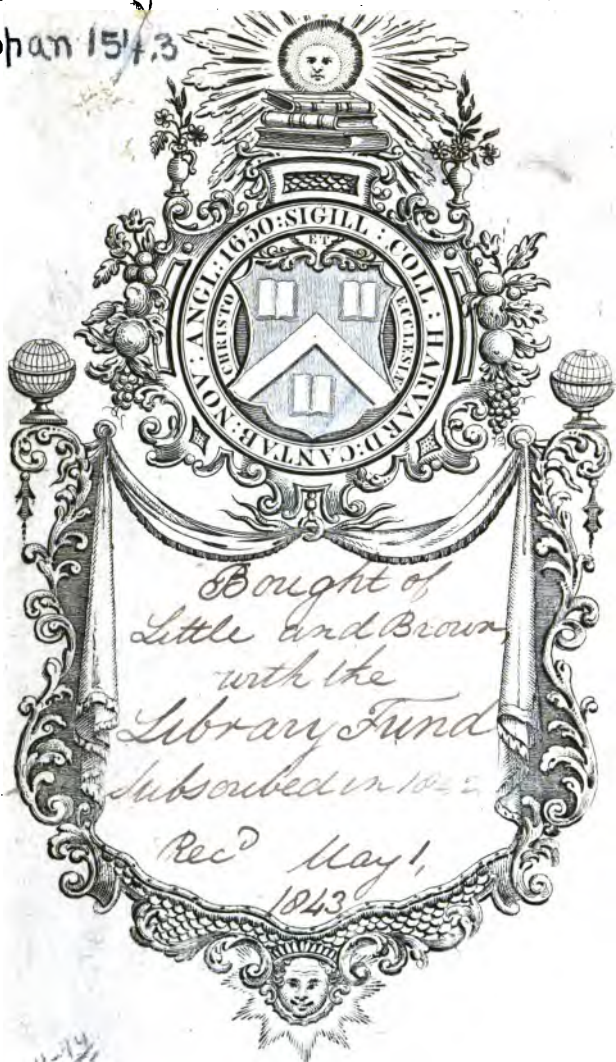 pan 154.3
SIGILL : COLL : HARVARD : CANTAB : NOV : ANGL : 1650 :
CHRISTO ET ECCLESIÆ
Bought of
Little and Brown,
with the
Library Fund
Subscribed in 1842
Rec<sup>d</sup> May 1,
1843